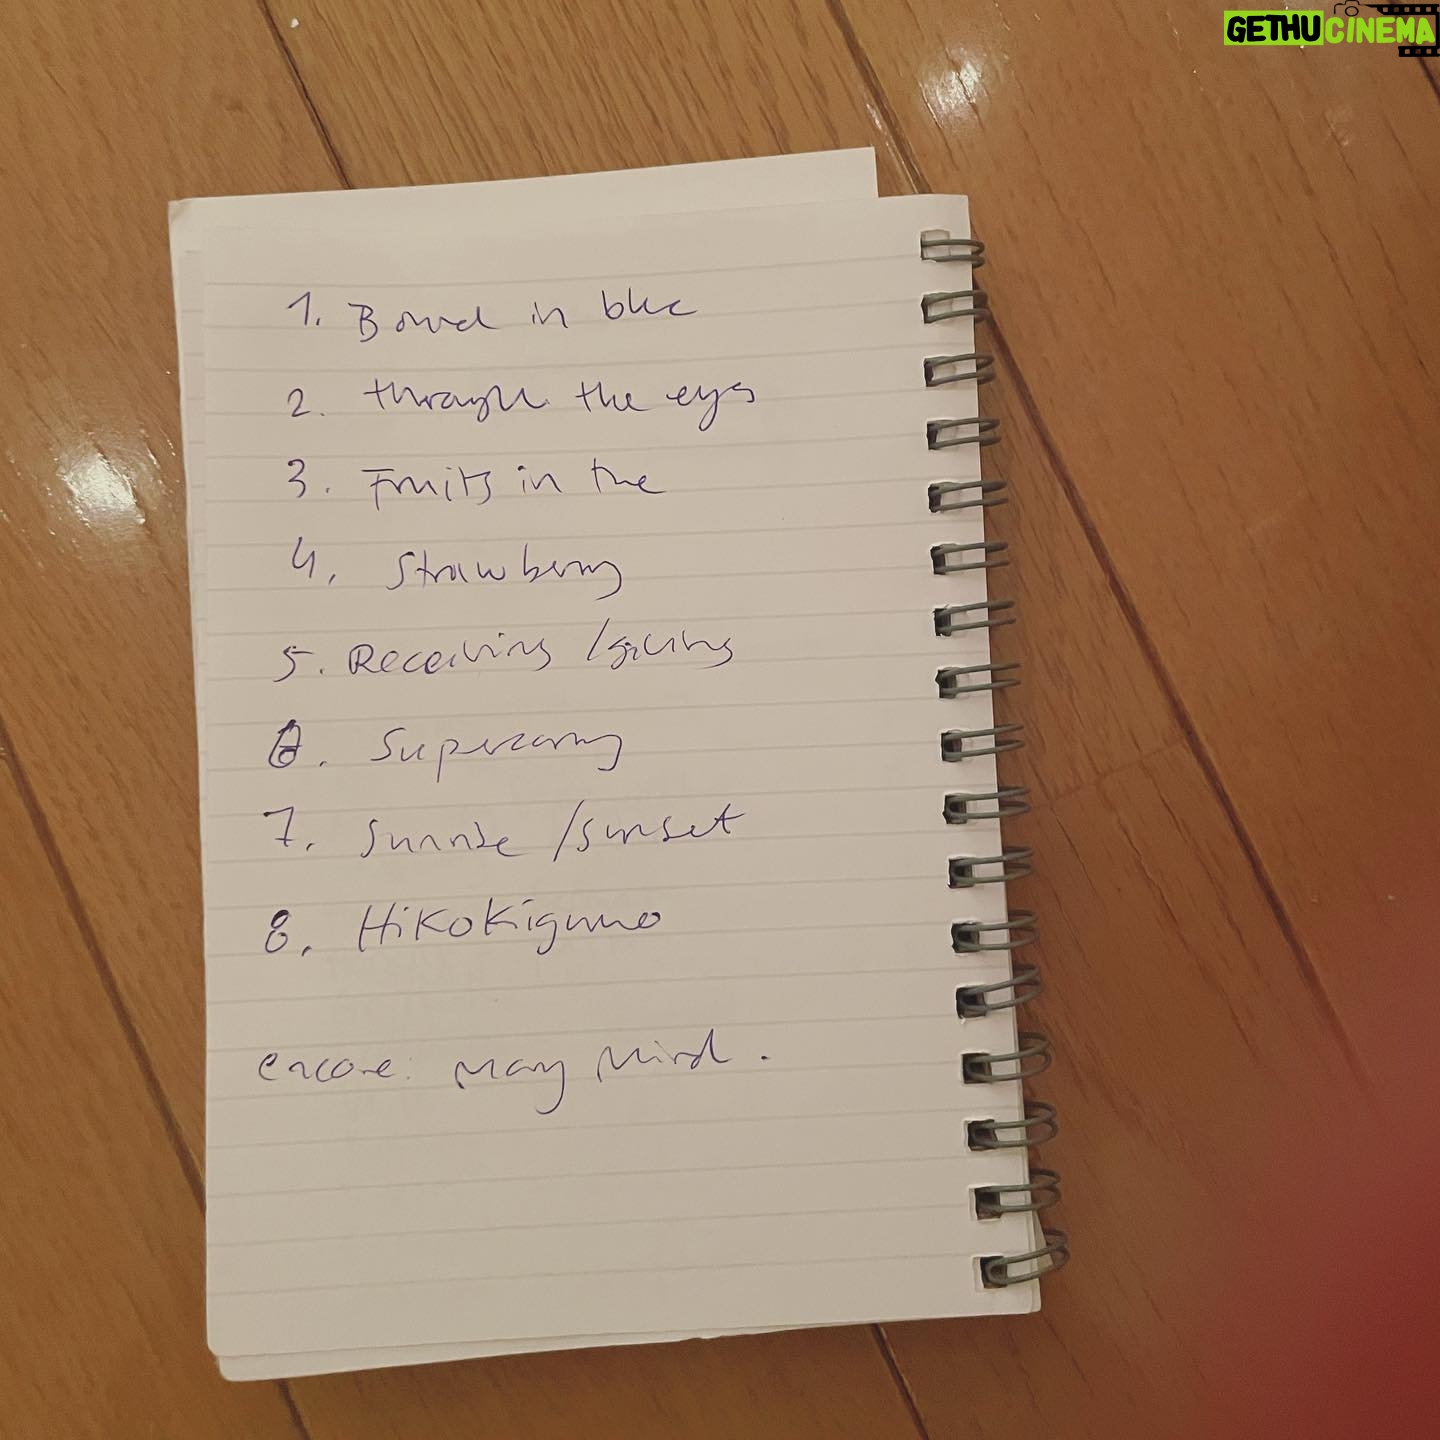 GETHUCINEMA
1. Bound in blue
2. through the eyes
3. Fruits in the
4. Strawberry
5. Receiving /giving
6.
7. Sunrise /sunset
8. Hikokigumo
encore: May Mind.